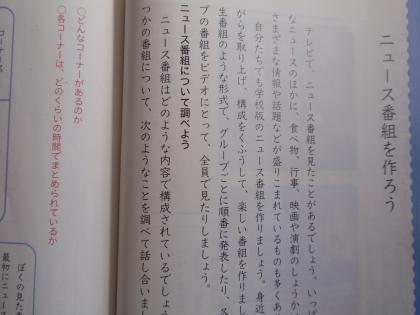 ニュース番組を作ろう
テレビで、ニュース番組を見たことがあるでしょう。いっぱ
なニュースのほかに、食べ物、行事、映画や演劇のしょうか
さまざまな情報や話題などが盛りこまれているものも多くあ
自分たちでも学校版のニュース番組を作りましょう。身近
がらを取り上げ、構成をくふうして、楽しい番組を作りまし
生番組のような形式で、グループごとに順番に発表したり、各
プの番組をビデオにとって、全員で見たりしましょう。
ニュース番組について調べよう
ニュース番組はどのような内容で構成されているでしょう
つかの番組について、次のようなことを調べて話し合いまし
○どんなコーナーがあるのか
○各コーナーは、どのくらいの時間でまとめられているか
コーナー
ぼくの見た
最初にニュース